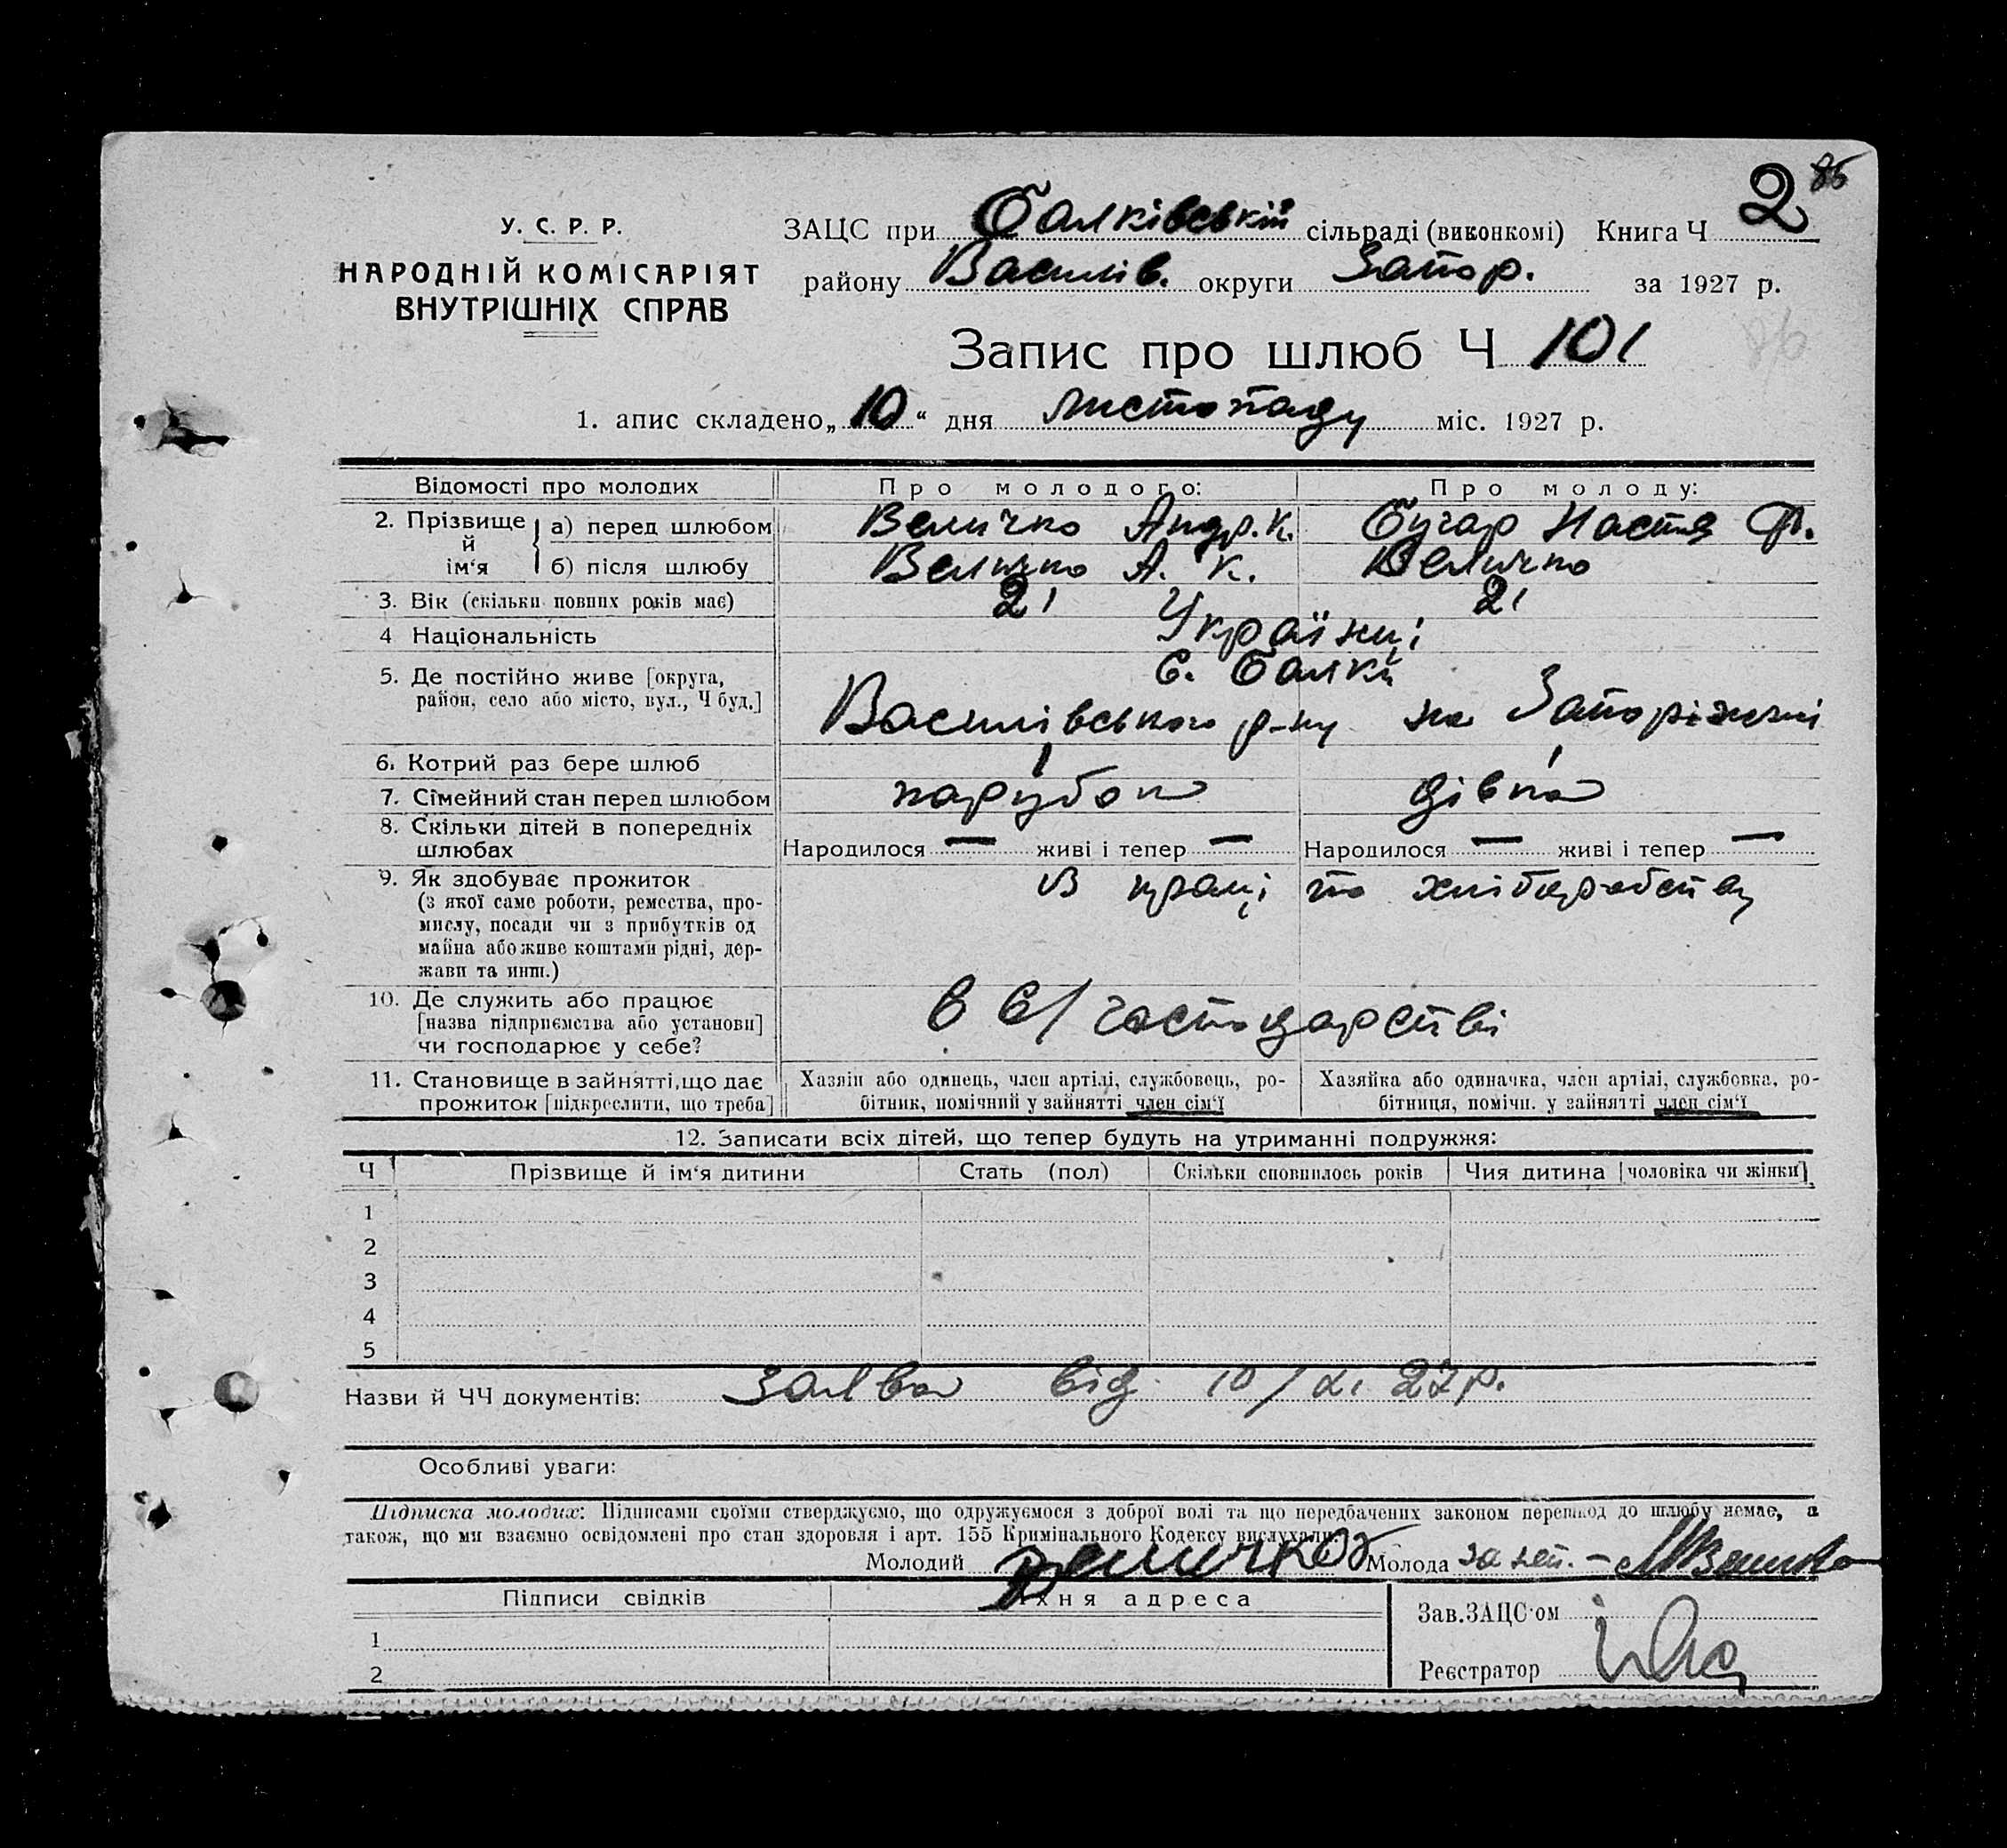 86
У. С. Р. Р.
НАРОДНІЙ КОМІСАРІЯТ
ВНУТРІШНІХ СПРАВ
ЗАЦС при Балківській сільраді (виконкомі) Книга Ч 2
району Василів. округи Запор. за 1927 р.
86
Запис про шлюб Ч 101
1. апис складено „10“ дня листопаду міс. 1927 р.
Відомості про молодих Про молодого: Про молоду:
2. Прізвище й ім‘я а) перед шлюбом Величко Андр. К. Бугар Настя Ф.
б) після шлюбу Величко А. К. Величко
3. Вік (скільки повних років має) 21 21
4 Національність Українці
5. Де постійно живе [округа, с. Балки
район, село або місто, вул., Ч буд.] Василівського р-ну на Запоріжчині
6. Котрий раз бере шлюб I I
7. Сімейний стан перед шлюбом парубок дівка
8. Скільки дітей в попередніх
шлюбах Народилося — живі і тепер — Народилося — живі і тепер —
9. Як здобуває прожиток В праці по хліборобству
(з якої саме роботи, ремества, про-
мислу, посади чи з прибутків од
майна або живе коштами рідні, дер-
жави та инш.)
10. Де служить або працює
[назва підприємства або установи] в с/господарстві
чи господарює у себе?
11. Становище в зайнятті, що дає Хазяїн або одинець, член артілі, службовець, ро- Хазяйка або одиначка, член артілі, службовка, ро-
прожиток [підкреслити, що треба] бітник, помічний у зайнятті член сім‘ї бітниця, помічн. у зайнятті член сім‘ї
12. Записати всіх дітей, що тепер будуть на утриманні подружжя:
Ч Прізвище й ім‘я дитини Стать (пол) Скільки сповнилось років Чия дитина [чоловіка чи жінки]
1
2
3
4
5
Назви й ЧЧ документів: заява від 10/XI 27 р.
Особливі уваги:
Підписка молодих: Підписами своїми стверджуємо, що одружуємося з доброї волі та що передбачених законом перешкод до шлюбу немає, а
також, що ми взаємно освідомлені про стан здоровля і арт. 155 Кримінального Кодексу вислухали.
Молодий Величко Молода за неп. –
Підписи свідків Їхня адреса
Зав. ЗАЦС‘ом
1
Реєстратор
2